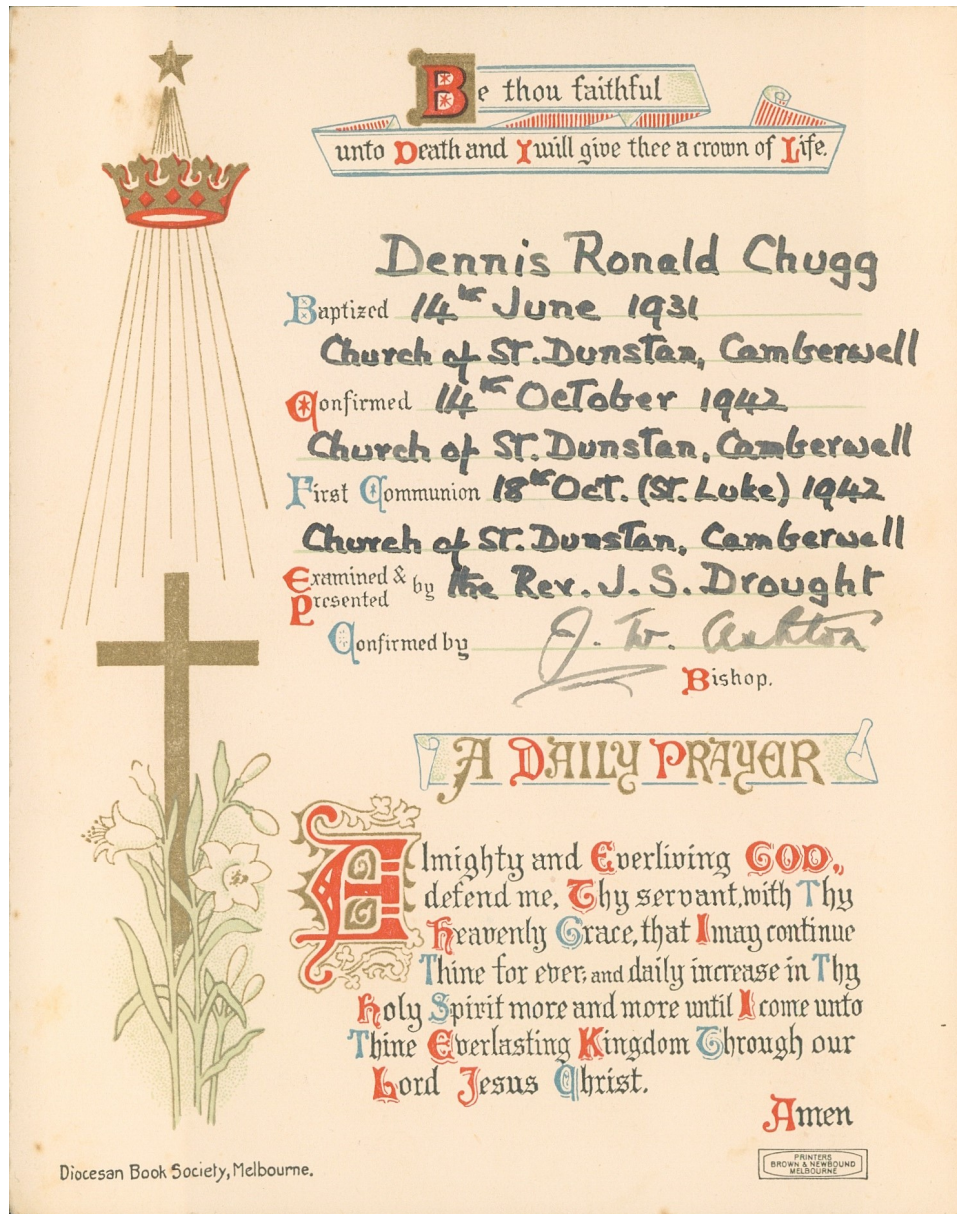 Be thou faithful
unto Death and I will give thee a crown of Life.
Dennis Ronald Chugg
Baptized 14th June 1931
Church of St. Dunstan, Camberwell
Confirmed 14th October 1942
Church of St. Dunstan, Camberwell
First Communion 18th Oct. (St. Luke) 1942
Church of St. Dunstan, Camberwell
Examined & Presented by the Rev. J. S. Drought
Confirmed by J. W. Ashton
Bishop.
A DAILY PRAYER
Almighty and Everliving GOD,
defend me, Thy servant, with Thy
Heavenly Grace, that I may continue
Thine for ever; and daily increase in Thy
Holy Spirit more and more until I come unto
Thine Everlasting Kingdom Through our
Lord Jesus Christ.
Amen
Diocesan Book Society, Melbourne.
PRINTERS
BROWN & NEWBOUND
MELBOURNE